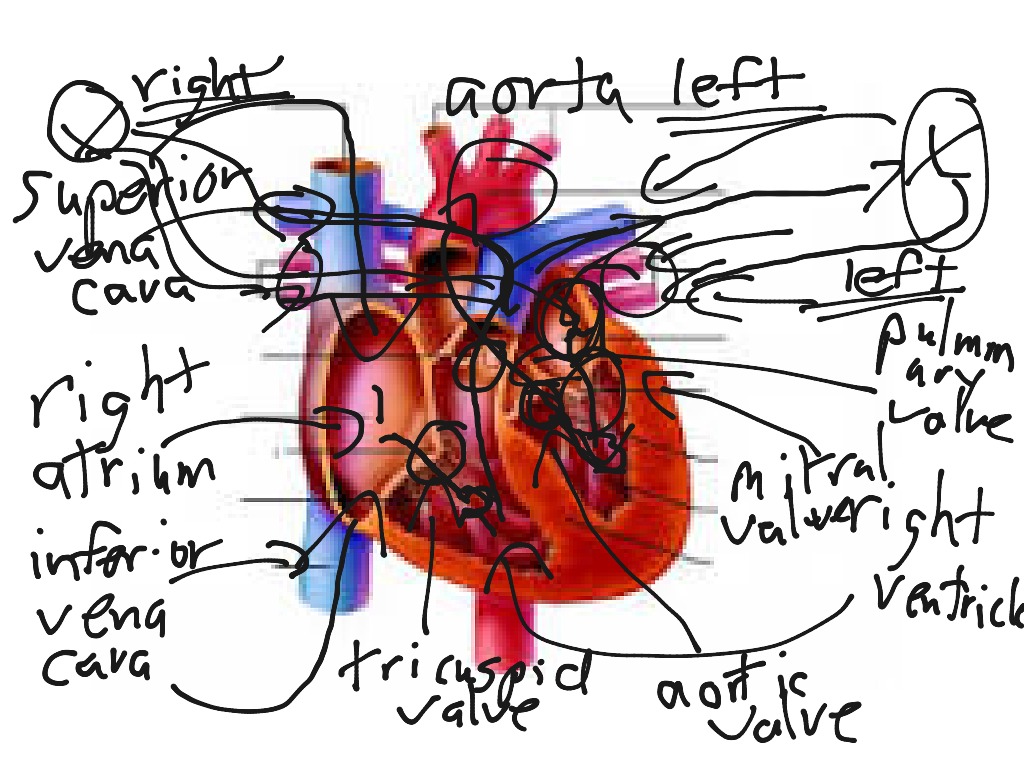 right
aorta left
superior
vena
cava
L
left
pulmm
ary
valve
right
atrium
mitral
valve
right
ventricle
inferior
vena
cava
tricuspid
valve
aortic
valve